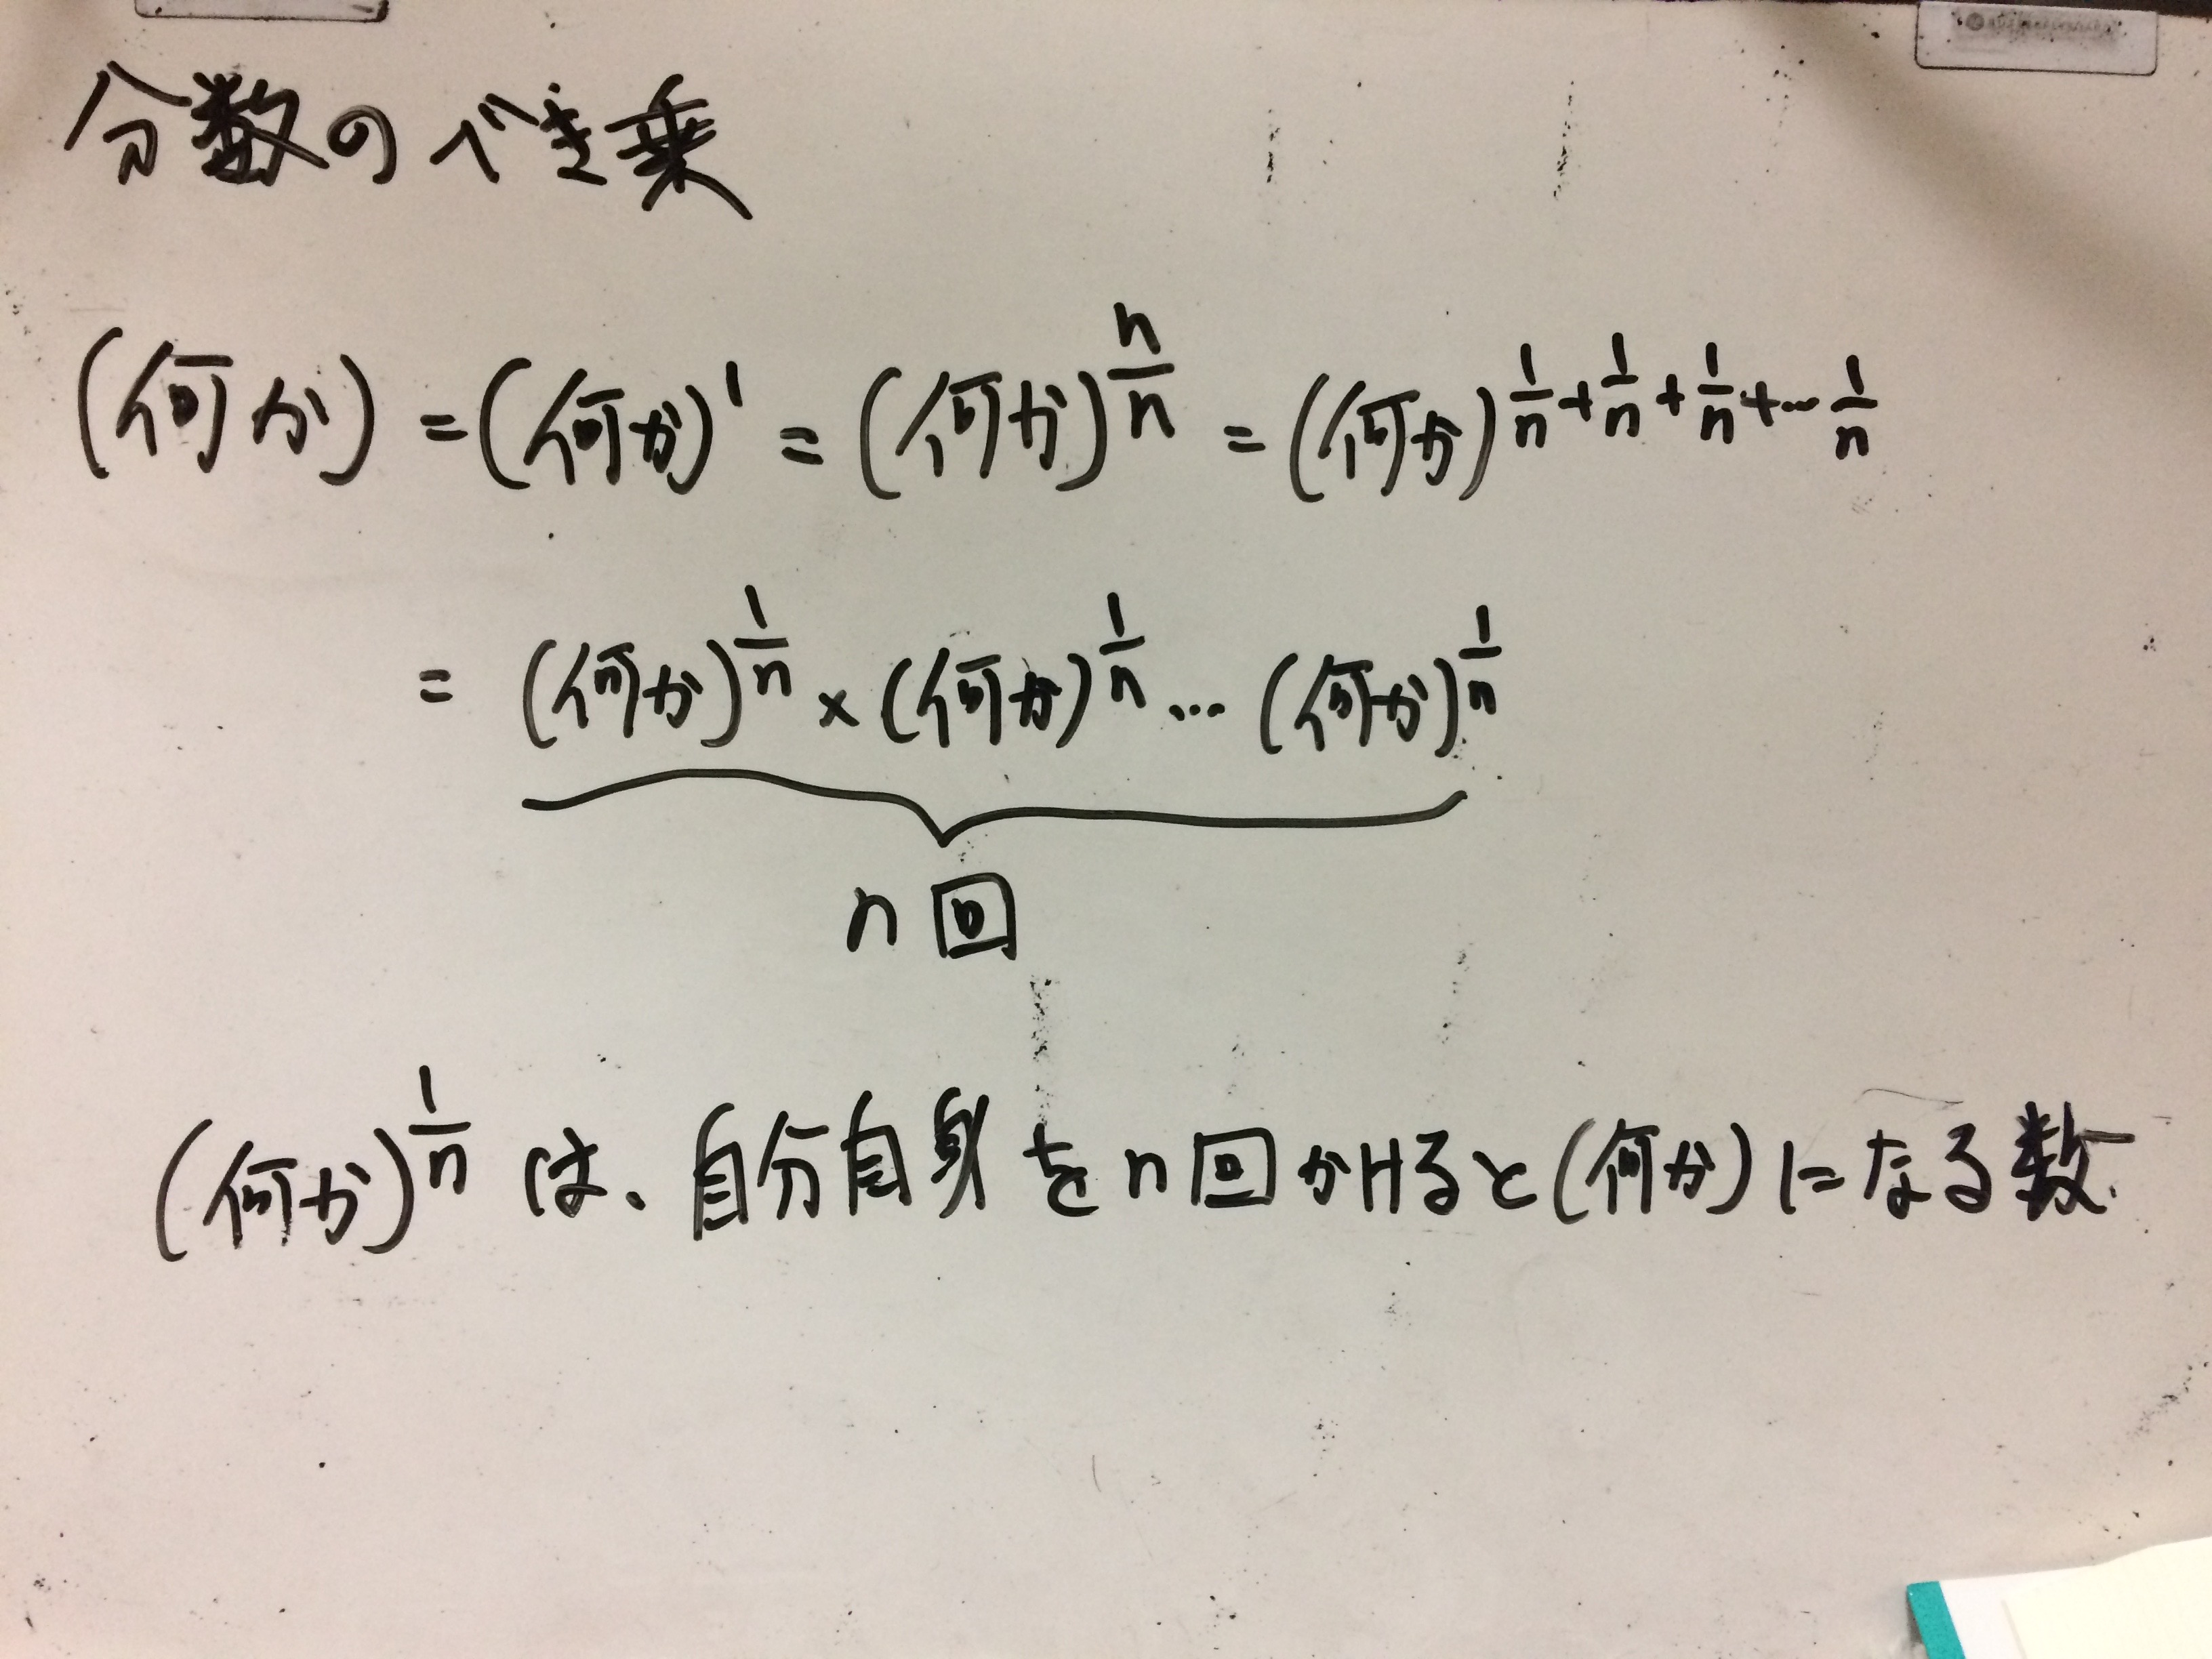 分数のべき乗
(何か) = (何か)¹ = (何か)^{n/n} = (何か)^{1/n + 1/n + 1/n + … 1/n}
= (何か)^{1/n} × (何か)^{1/n} … (何か)^{1/n}
n回
(何か)^{1/n} は、自分自身をn回かけると(何か)になる数